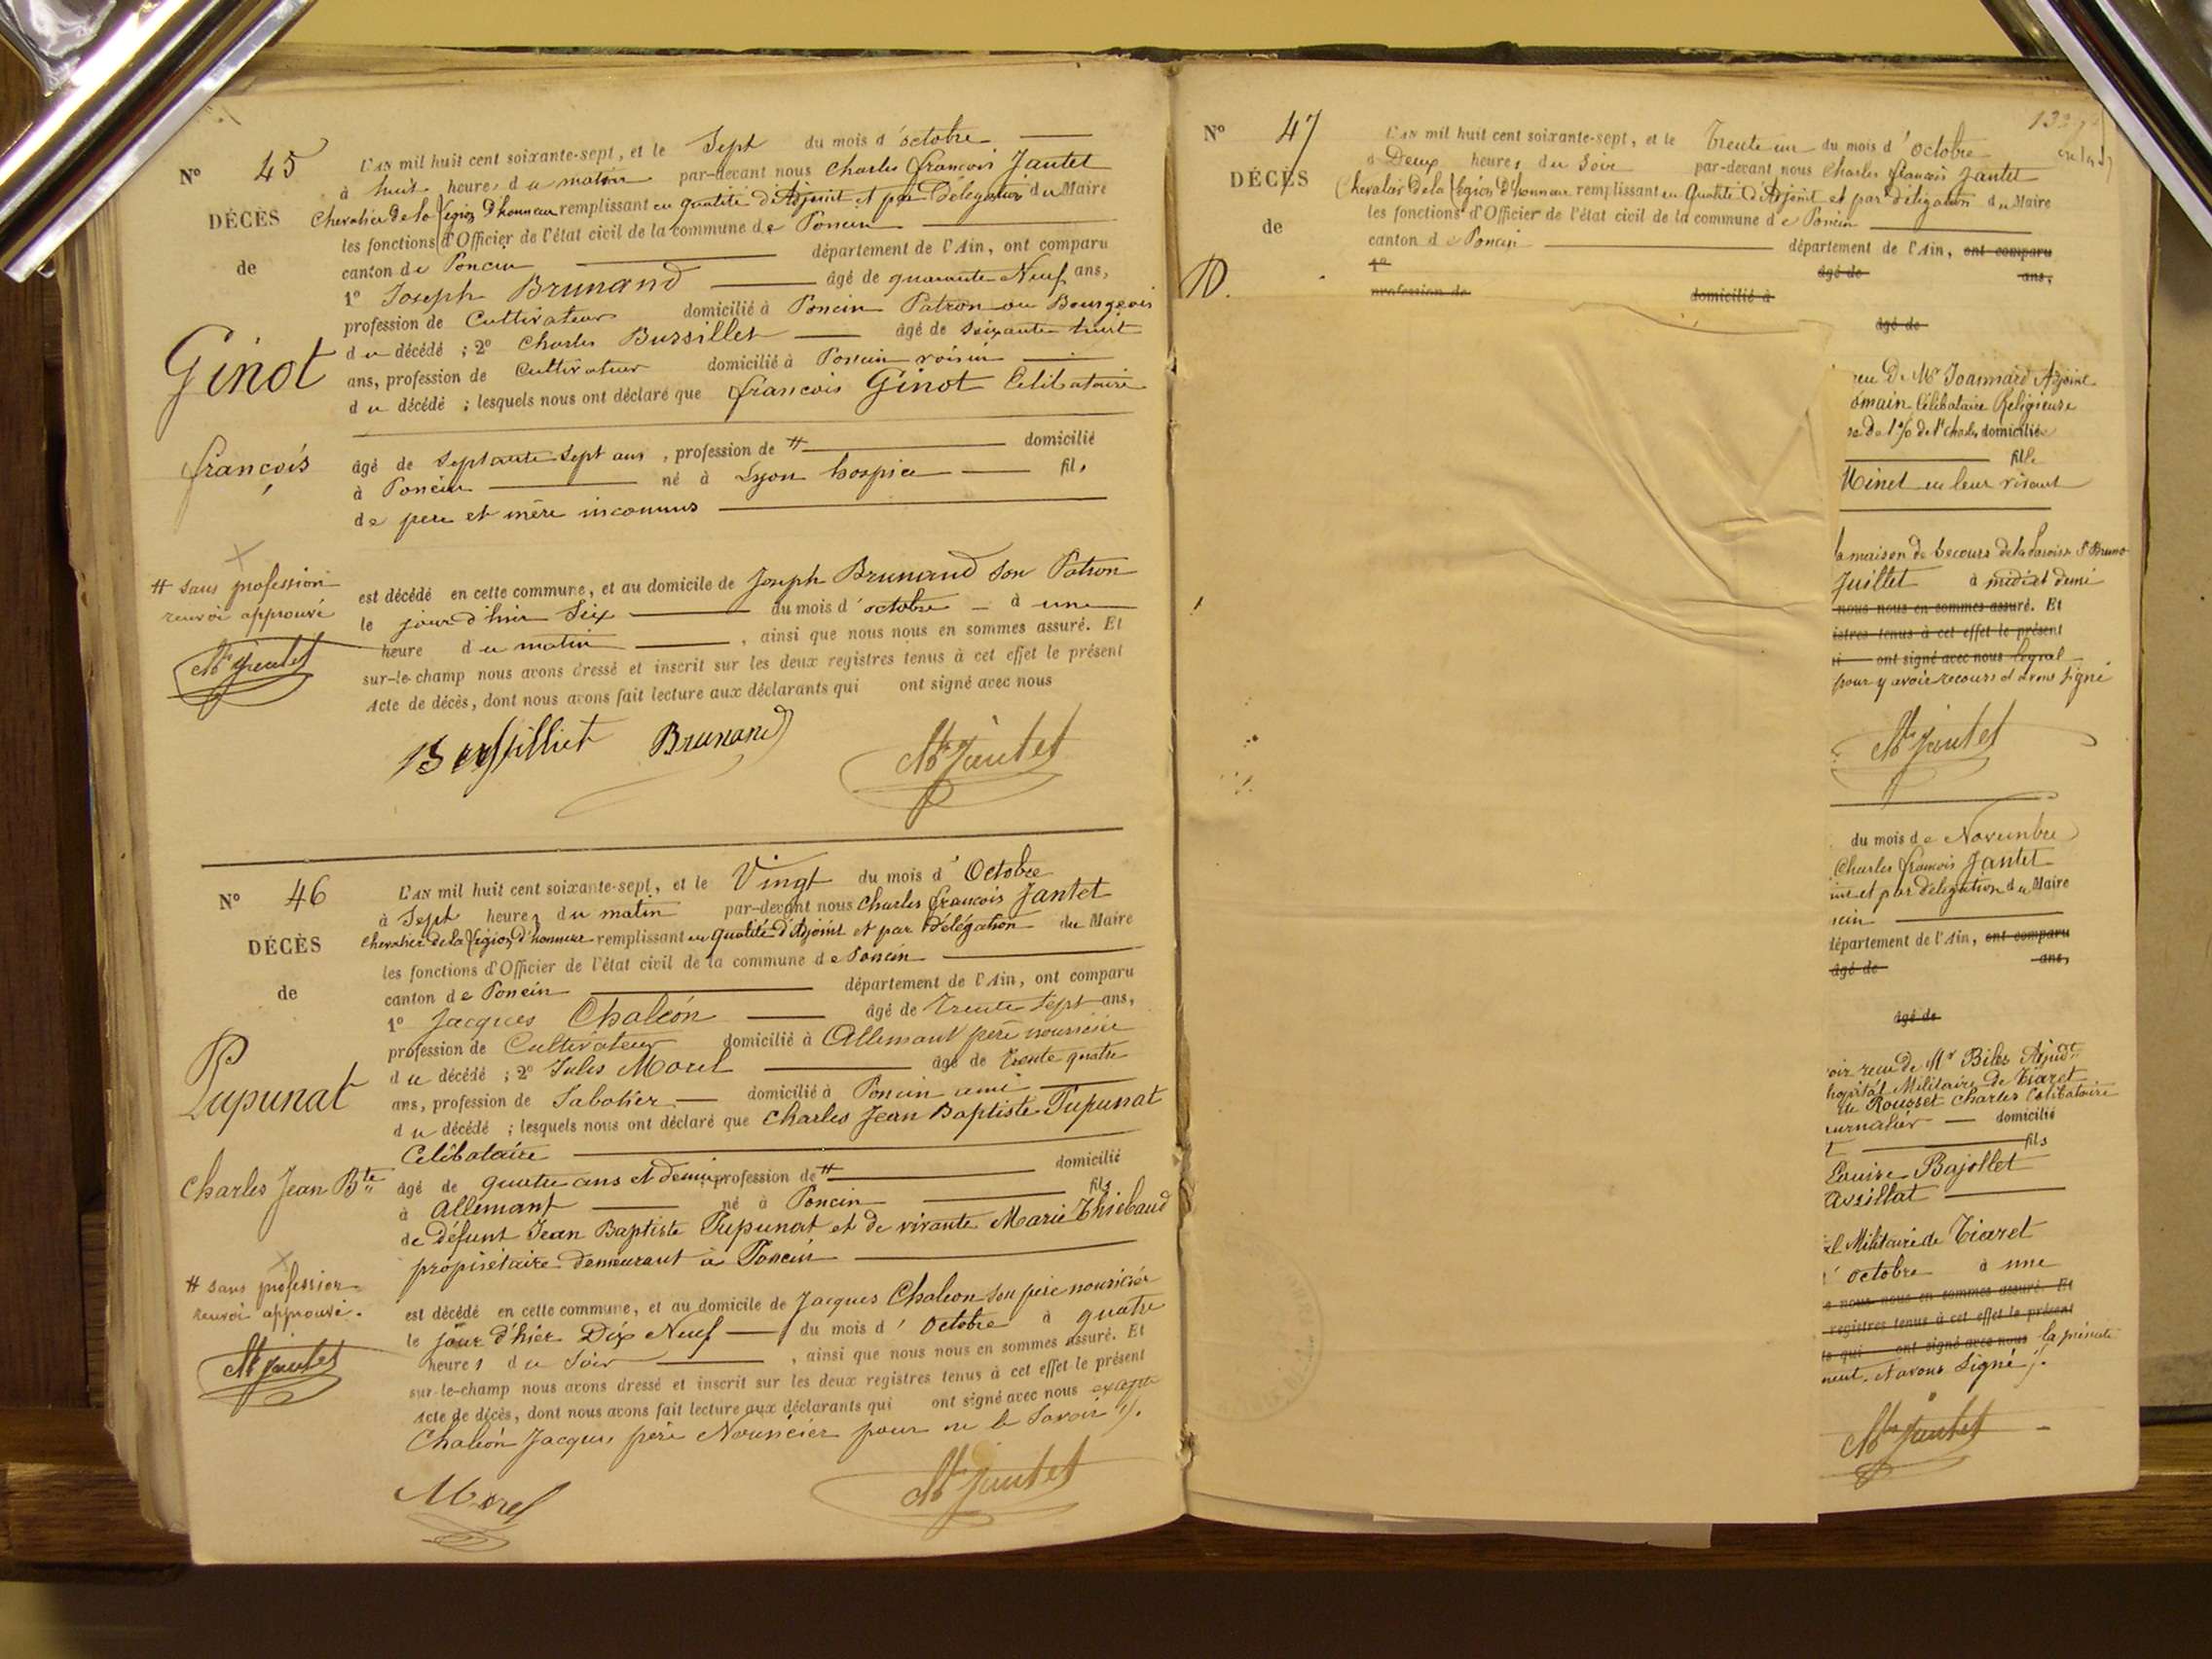 N° 45
DÉCÈS
de
Ginot
françois
# sans profession
renvoi approuvé
Jantet
L'AN mil huit cent soixante-sept, et le Sept du mois d'octobre
à huit heures du matin par-devant nous Charles François Jantet
Chevalier de la Légion d'honneur remplissant en qualité d'Adjoint et par Délégation du Maire
les fonctions d'Officier de l'état civil de la commune de Poncin
canton de Poncin département de l'Ain, ont comparu
1° Joseph Brunand âgé de quarante Neuf ans,
profession de Cultivateur domicilié à Poncin Patron ou Bourgeois
du décédé ; 2° Charles Bussillet âgé de soixante huit
ans, profession de Cultivateur domicilié à Poncin voisin
du décédé ; lesquels nous ont déclaré que françois Ginot Célibataire
âgé de Septante Sept ans, profession de # domicilié
à Poncin né à Lyon hospice fils
de père et mère inconnus
est décédé en cette commune, et au domicile de Joseph Brunand son Patron
le jour d'hier Six du mois d'octobre à une
heure du matin, ainsi que nous nous en sommes assuré. Et
sur-le-champ nous avons dressé et inscrit sur les deux registres tenus à cet effet le présent
Acte de décès, dont nous avons fait lecture aux déclarants qui ont signé avec nous
Bussilliet Brunand Jantet
N° 46
DÉCÈS
de
Pupunat
Charles Jean Bte
# sans profession
renvoi approuvé.
Jantet
L'AN mil huit cent soixante-sept, et le Vingt du mois d'Octobre
à Sept heures du matin par-devant nous Charles François Jantet
Chevalier de la Légion d'honneur remplissant en qualité d'Adjoint et par Délégation du Maire
les fonctions d'Officier de l'état civil de la commune de Poncin
canton de Poncin département de l'Ain, ont comparu
1° Jacques Chaléon âgé de Trente Sept ans,
profession de Cultivateur domicilié à Allemant père nourricier
du décédé ; 2° Jules Morel âgé de Trente quatre
ans, profession de Sabotier domicilié à Poncin ami
du décédé ; lesquels nous ont déclaré que Charles Jean Baptiste Pupunat
Célibataire
âgé de quatre ans et demi profession de # domicilié
à Allemant né à Poncin fils
de Défunt Jean Baptiste Pupunat et de vivante Marie Thiébaud
propriétaire demeurant à Poncin
est décédé en cette commune, et au domicile de Jacques Chaleon son père nouricier
le jour d'hier Dix Neuf du mois d'Octobre à quatre
heures du Soir, ainsi que nous nous en sommes assuré. Et
sur-le-champ nous avons dressé et inscrit sur les deux registres tenus à cet effet le présent
Acte de décès, dont nous avons fait lecture aux déclarants qui ont signé avec nous excepté
Chaléon Jacques père Nouricier pour ne le Savoir ./.
Morel Jantet
N° 47
DÉCÈS
de
D.
L'AN mil huit cent soixante-sept, et le Trente un du mois d'octobre
à Deux heures du Soir par-devant nous Charles François Jantet
Chevalier de la Légion D'honneur remplissant en Qualité d'Adjoint et par délégation du Maire
les fonctions d'Officier de l'état civil de la commune de Poncin
canton de Poncin département de l'Ain, ont comparu
1° âgé de ans,
profession de domicilié à
âgé de
eçu De Mr Joannard Adjoint
omain Célibataire Religieuse
de St Charles domiciliée
fille
Minet en leur vivant
la maison de Secours de la Paroisse St Bruno
Juillet à midi et demi
nous nous en sommes assuré. Et
istres tenus à cet effet le présent
ont signé avec nous legral
pour y avoir recours et avons signé
Jantet
du mois de Novembre
Charles François Jantet
int et par délégation du Maire
ncin
département de l'Ain, ont comparu
âgé de ans,
âgé de
oir recu de Mr Biles
hopital Militaire de Tiaret
de Rousset Charles Célibataire
ournalier domicilié
fils
Louise Bajollet
Avsillat
el Militaire de Tiaret
d'octobre à une
e nous nous en sommes assuré. Et
registres tenus à cet effet le présent
ts qui ont signé avec nous la présente
ment, et avons Signé ./.
Jantet